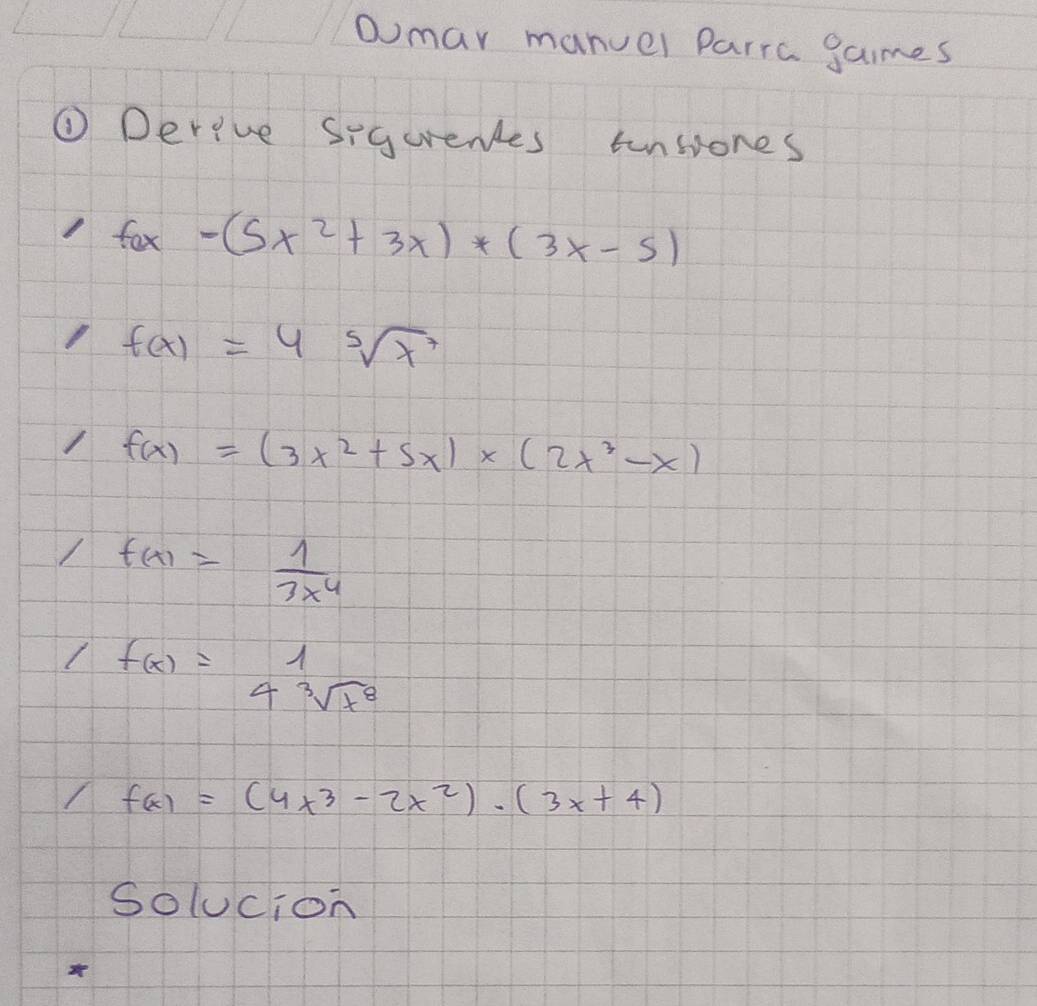 Dumar manuel Parra Jaimes
① Derive siguientes funsiones
f(x) -(5x² + 3x) * (3x - 5)
f(x) = 4 ⁵√x⁷
f(x) = (3x² + 5x) × (2x³ - x)
f(x) = 1
3x⁴
f(x) = 1
4 ³√x⁸
f(x) = (4x³ - 2x²) . (3x + 4)
Solución
*